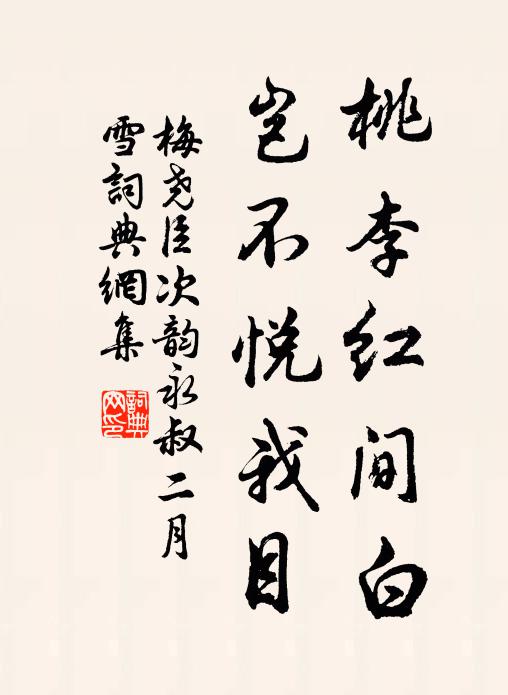 桃李红间白
岂不悦我目
梅尧臣次韵永叔二月
雪詞典網集
詞典网印